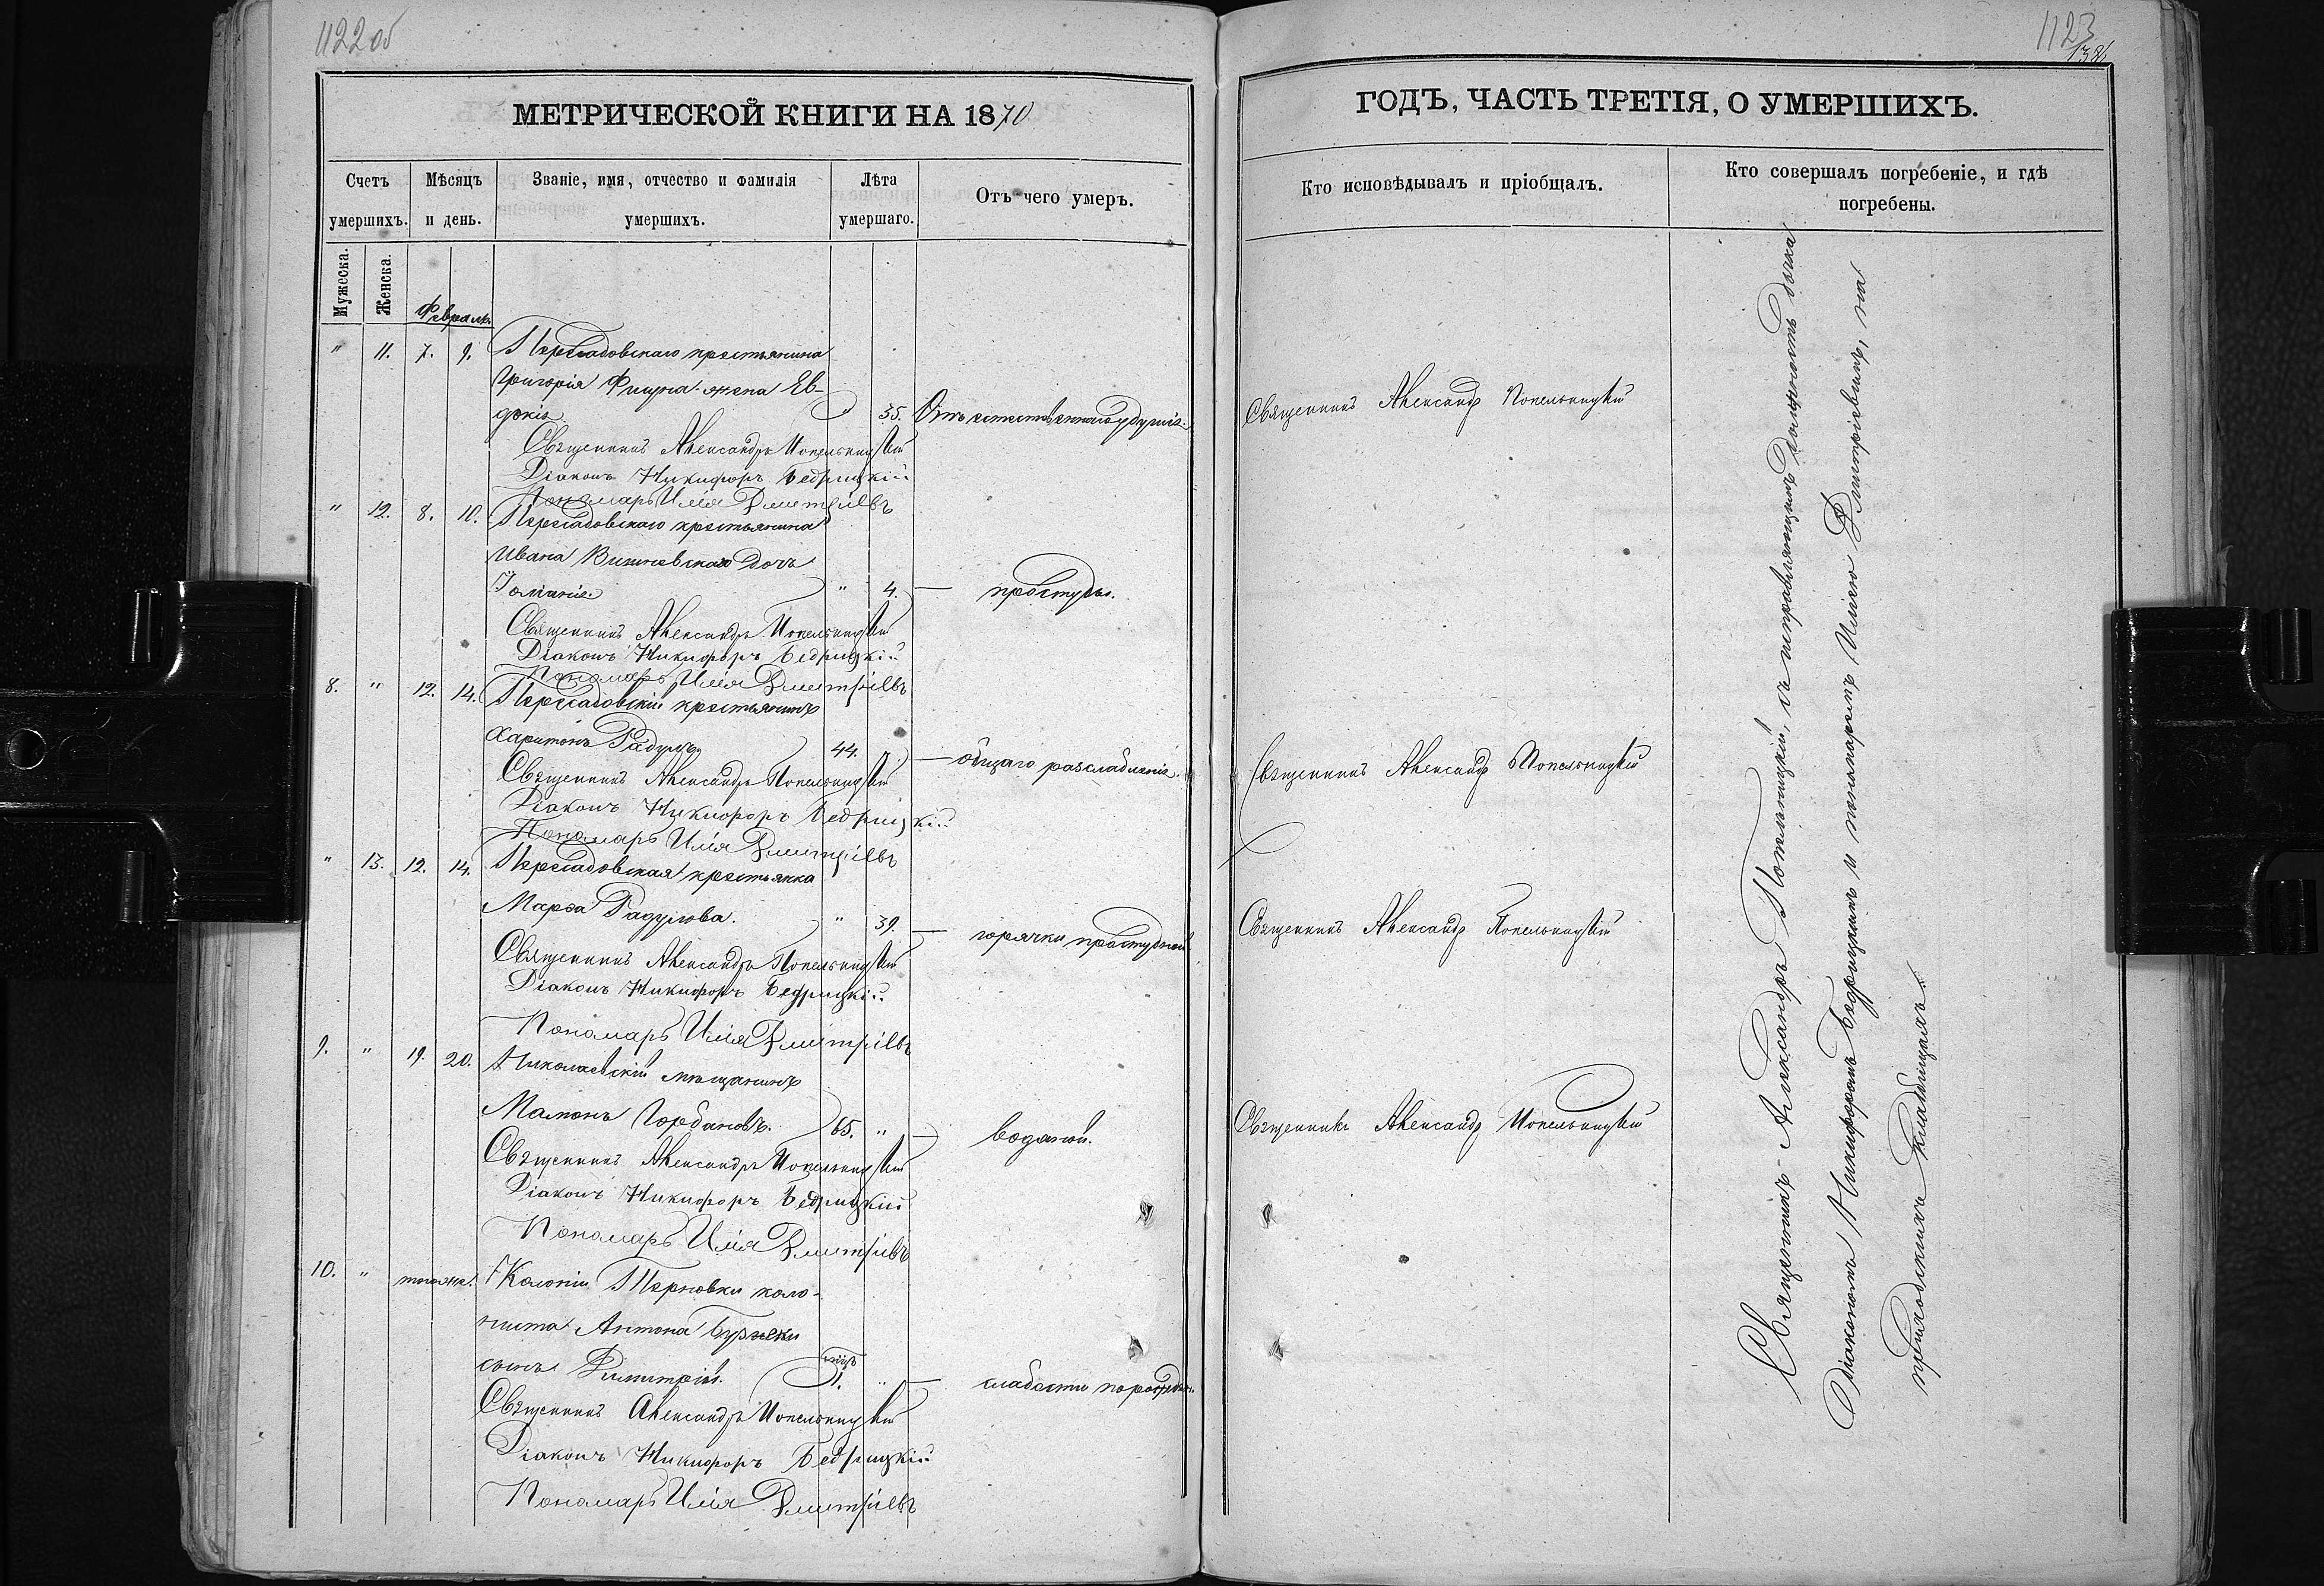 1122 об
МЕТРИЧЕСКОЙ КНИГИ НА 1870
Счетъ умершихъ.
Мѣсяцъ и день.
Званіе, имя, отчество и фамилія умершихъ.
Лѣта умершаго.
Отъ чего умеръ.
Мужеска.
Женска.
Февраль
" 11. 7. 9. Пересадовскаго крестьянина
Григорія Фицуна жена Ев-
докія 35. Отъ
Священникъ Александръ Попельницкій
Діаконъ Никифоръ Бедрицкій
Пономарь Илія Дмитріевъ
" 12. 8. 10. Пересадовскаго крестьянина
Ивана Вишневскаго дочь
" 4. — простуды.
Священникъ Александръ Попельницкій
Діаконъ Никифоръ Бедрицкій
Пономарь Илія Дмитріевъ
8. " 12. 14. Пересадовскій крестьянинъ
Харитонъ Радуловъ 44. " — общаго разслабленія.
Священникъ Александръ Попельницкій
Діаконъ Никифоръ Бедрицкій
Пономарь Илія Дмитріевъ
" 13. 12. 14. Пересадовская крестьянка
Марѳа Радулова. " 39. — горячки простудной
Священникъ Александръ Попельницкій
Діаконъ Никифоръ Бедрицкій
Пономарь Илія Дмитріевъ
9. " 19. 20. Николаевскій мѣщанинъ
Мамонъ Горбановъ. 65. " — водяной.
Священникъ Александръ Попельницкій
Діаконъ Никифоръ Бедрицкій
Пономарь Илія Дмитріевъ
10. " Колоніи Терновки коло-
ниста Антона
сынъ Димитрій. 1. " — слабости
Священникъ Александръ Попельницкій
Діаконъ Никифоръ Бедрицкій
Пономарь Илія Дмитріевъ
1123
ГОДЪ, ЧАСТЬ ТРЕТІЯ, О УМЕРШИХЪ.
Кто исповѣдывалъ и пріобщалъ.
Кто совершалъ погребеніе, и гдѣ погребены.
Священникъ Александръ Попельницкій
Священникъ Александръ Попельницкій
Священникъ Александръ Попельницкій
Священникъ Александръ Попельницкій
Священникъ Александръ Попельницкій, съ исправляющимъ должность дьяка
Діакономъ Никифоромъ Бедрицкимъ и пономаремъ Иліею Дмитріевымъ, на
приходскихъ кладбищахъ.